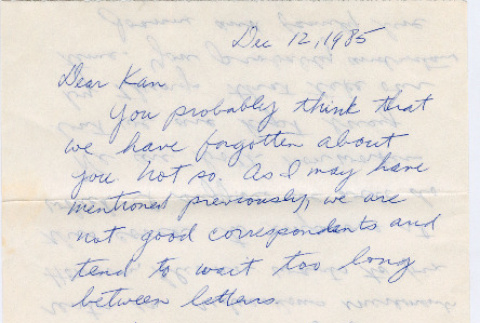 Dec 12, 1985
Dear Kan
You probably think that
we have forgotten about
you. Not so. As I may have
mentioned previously, we are
not good correspondents and
tend to wait too long
between letters.